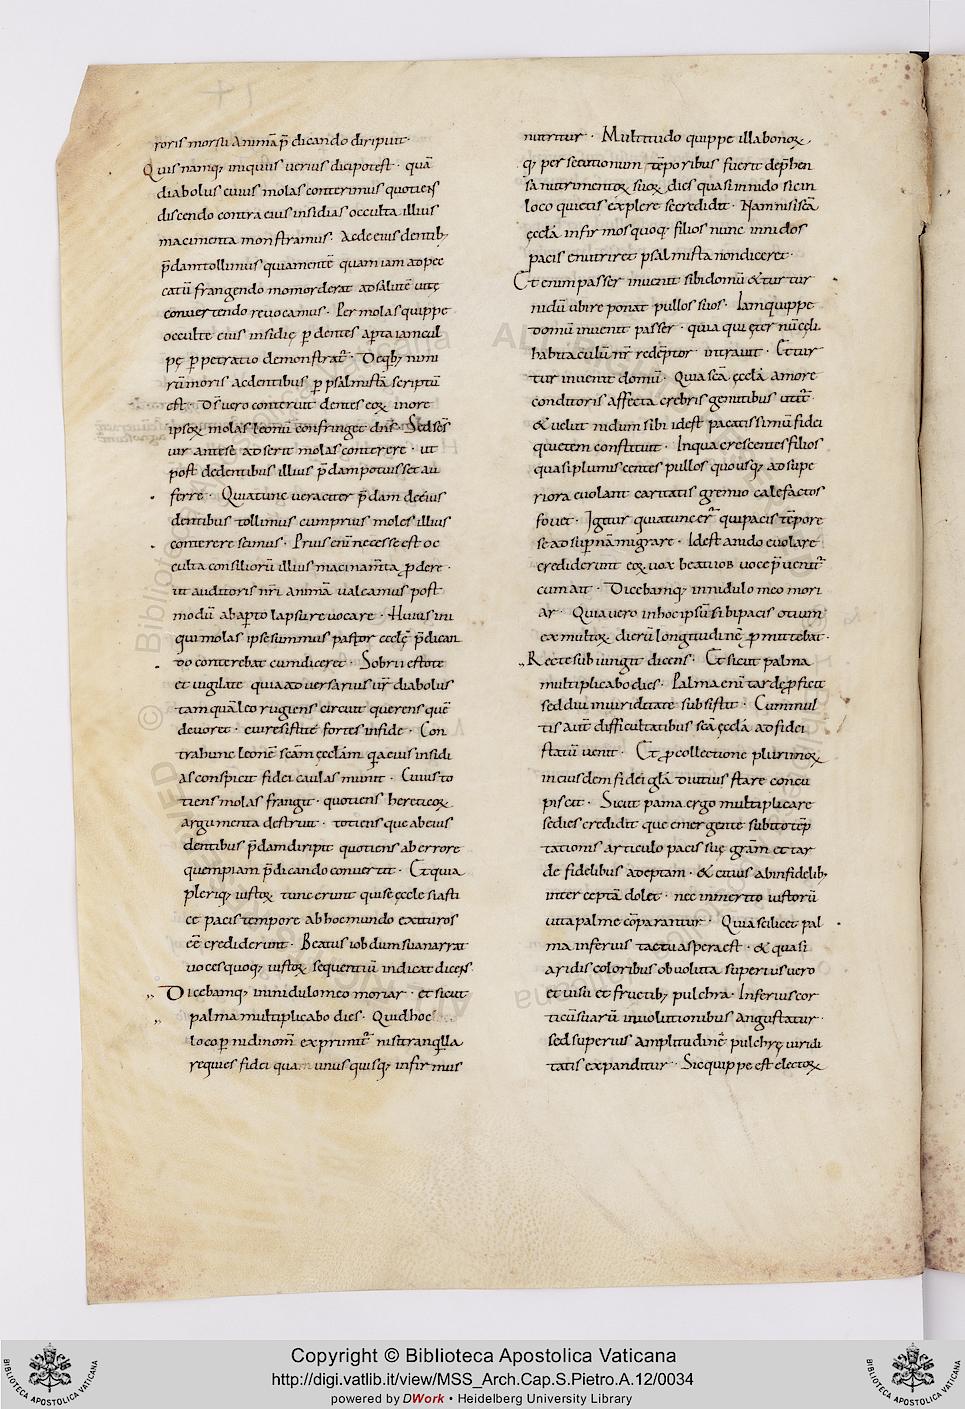 roris morsu animā p̄dicando diripuit·
Quis namq; iniquus uerius dici potest · quā
diabolus cuius molas conterimus quotiens
discendo contra eius insidias occulta illius
macimenta monstramus· Ac de eius dentib;
p̄dam tollimus quia mentē quam iam ad pec
catū frangendo momorderat ad salutē uitę
conuertendo reuocamus· Per molas quippe
occulte eius insidię ꝑ dentes aꝑta iam cul
pę ꝑpetratio demonstrat̄· De qb; nimi
rū moris ac dentibus ꝑ psalmistā scriptū
est· Ds̄ uero conteruit dentes eoꝝ in ore
ipsoꝝ molas leonū confringet dn̄s· Sed sc̄s
uir ante se adserit molas conterere · ut
post de dentibus illius p̄dam potuisset au
ferre· Quia tunc ueraciter p̄dam de eius
dentibus tollimus cum prius moles illius
conterere scimus· Prius enī necesse est oc
culta consiliorū illius macinam̄ta ꝓdere·
ut auditoris nr̄i animā ualeamus post
modū ab aꝑto lapsu reuocare· Huius ini
qui molas ipse summus pastor ęcclę p̄dican
do conterebat cum diceret· Sobrii estote
et uigilate quia aduersarius ur̄ diabolus
tamquā leo rugiens circuit querens quē
deuoret· cui resistite fortes in fide· Con
tra hunc leonē sc̄am ęcclām q̄a eius insidi
as conspicit fidei caulas munit· Cuius to
tiens molas frangit· quotiens hereticoꝝ
argumenta destruit· totiensque ab eius
dentibus p̄dam diripit quotiens ab errore
quempiam p̄dicando conuertit· Et quia
pleriq; iustoꝝ tunc erunt qui se ęcclesiasti
cę pacis tempore ab hoc mundo exituros
eē crediderunt· Beatus iob dum sua narrat
uoces quoq; iustoꝝ sequentiū indicat dicens
Dicebamq; in nidulo meo moriar· et sicut
palma multiplicabo dies· Quid hoc
loco ꝑ nidi nom̄ exprimit̄ nisi tranq̇lla
requies fidei qua unus quisq; infirmus
nutritur· Multitudo quippe illa bonoꝝ
q; persecutionum tēporibus fuerit dep̄hen
sa nutrimentoꝝ suoꝝ dies quasi in nido sic in
loco quietis explere se credidit· Nam nisi sc̄a
ęcclā infirmos quoq; filios nunc in nidos
pacis enutriret psalmista non diceret·
Etenim passer inuenit sibi domū & turtur
nidū ubi reponat pullos suos· Iam quippe
domū inuenit passer· quia qui ęt̄nū cęli
habitaculū nr̄ redēptor intrauit· Et tur
tur inuenit domū· Quia sc̄a ęcclā amore
conditoris affecta crebris gemitibus utit̄·
& uelut nidum sibi idest pacatissimū fidei
quietem constituit· In qua crescentes filios
quasi plumescentes pullos quousq; ad supe
riora euolant caritatis gremio calefactos
fouet· Igitur quia tunc er̄ qui pacis tēpore
se ad suꝑna migrare· Idest ad nido euolare
crediderunt eoꝝ uox beati iob uoce p̄uenit̄
cum ait· Dicebamq; in nidulo meo mori
ar· Quia uero in hoc ipsū sibi pacis otium
ex multoꝝ dierū longitudinē ꝓmittebat·
Recte subiungit dicens· Et sicut palma
multiplicabo dies· Palma enī tarde ꝓficit
sed diu in uiriditate subsistit· Cum mul
tis autē difficultatibus sc̄a ęcclā ad fidei
statū uenit· Et ꝓ collectione plurimoꝝ
in eiusdem fidei glā diutius stare concu
piscit· Sicut pama ergo multiplicare
se dies credidit que emergente subito tēp
tationis articulo pacis suę grām et tar
de fidelibus adeptam· & citius ab infidelib;
interceptā dolet· nec inmerito iustorū
uita palme cōparantur· Quia scilicet pal
ma inferius tactu aspera est· & quasi
aridis coloribus obuoluta superius uero
et uisu et fructib; pulchra· Inferius cor
ticū suarū inuolutionibus angustatur·
sed superius amplitudinē pulchrę uiridi
tatis expanditur· Sic quippe est electoꝝ
Copyright © Biblioteca Apostolica Vaticana
http://digi.vatlib.it/view/MSS_Arch.Cap.S.Pietro.A.12/0034
powered by DWork • Heidelberg University Library
BIBLIOTECA APOSTOLICA VATICANA
BIBLIOTECA APOSTOLICA VATICANA